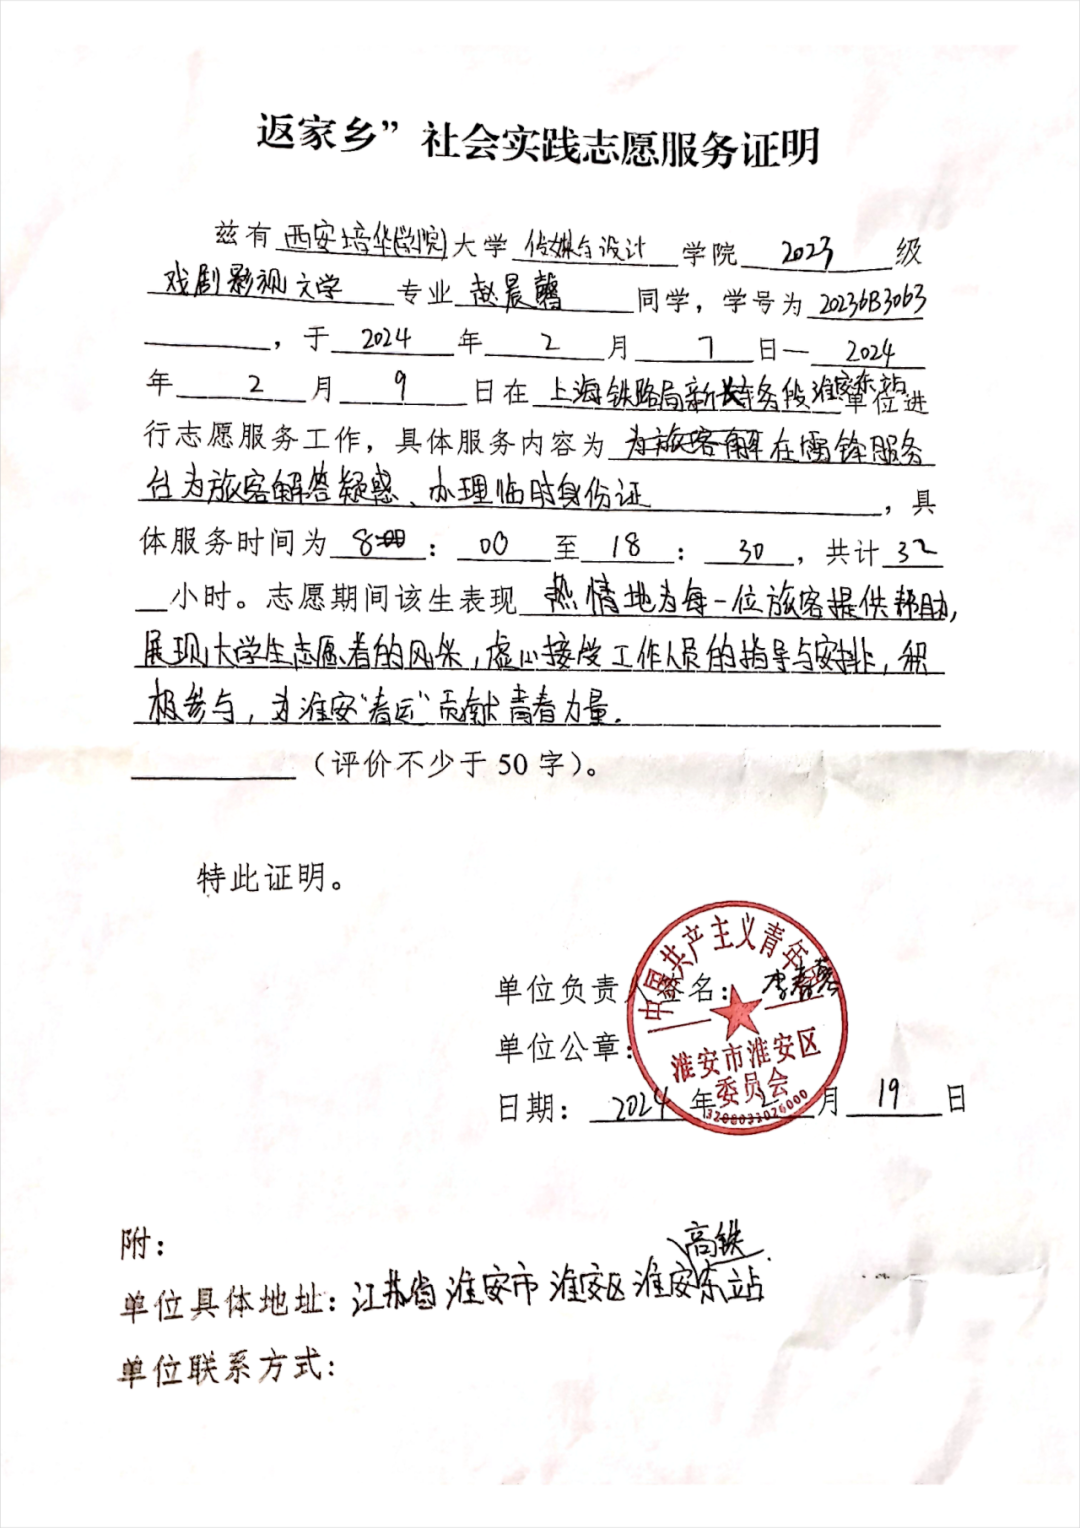 返家乡”社会实践志愿服务证明
兹有 西安培华(学院) 大学 传媒与设计 学院 2023 级
戏剧影视文学 专业 赵晨馨 同学，学号为 20236B3063
，于 2024 年 2 月 7 日— 2024
年 2 月 9 日在 上海铁路局新长车务段淮安东站 单位进
行志愿服务工作，具体服务内容为 为旅客解在雷锋服务
台为旅客解答疑惑、办理临时身份证 ，具
体服务时间为 8 : 00 至 18 : 30 ，共计 32
小时。志愿期间该生表现 热情地为每一位旅客提供帮助，
展现大学生志愿者的风采，虚心接受工作人员的指导与安排，积
极参与，为淮安“春运”贡献青春力量。
（评价不少于 50 字）。
特此证明。
单位负责人签名： 李春
单位公章：
日期： 2024 年 2 月 19 日
中国共产主义青年团
淮安市淮安区
委员会
3208033026000
附：
高铁
单位具体地址：江苏省淮安市淮安区淮安东站
单位联系方式：